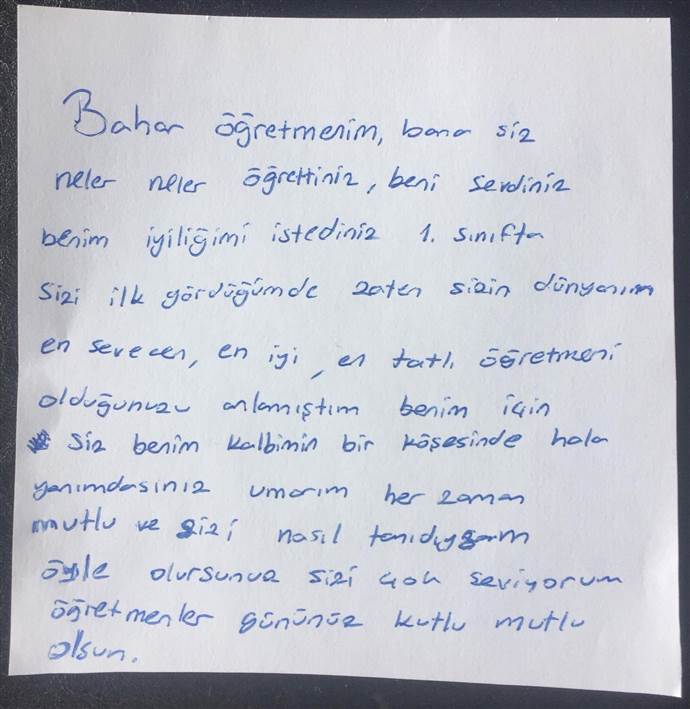 Bahar öğretmenim, bana siz
neler neler öğrettiniz, beni sevdiniz
benim iyiliğimi istediniz 1. sınıfta
Sizi ilk gördüğümde zaten sizin dünyanım
en sevecen, en iyi, en tatlı öğretmeni
olduğunuzu anlamıştım benim için
siz benim kalbimin bir köşesinde hala
yanımdasınız umarım her zaman
mutlu ve sizi nasıl tanıdıysam
öyle olursunuz sizi çok seviyorum
öğretmenler gününüz kutlu mutlu
olsun.